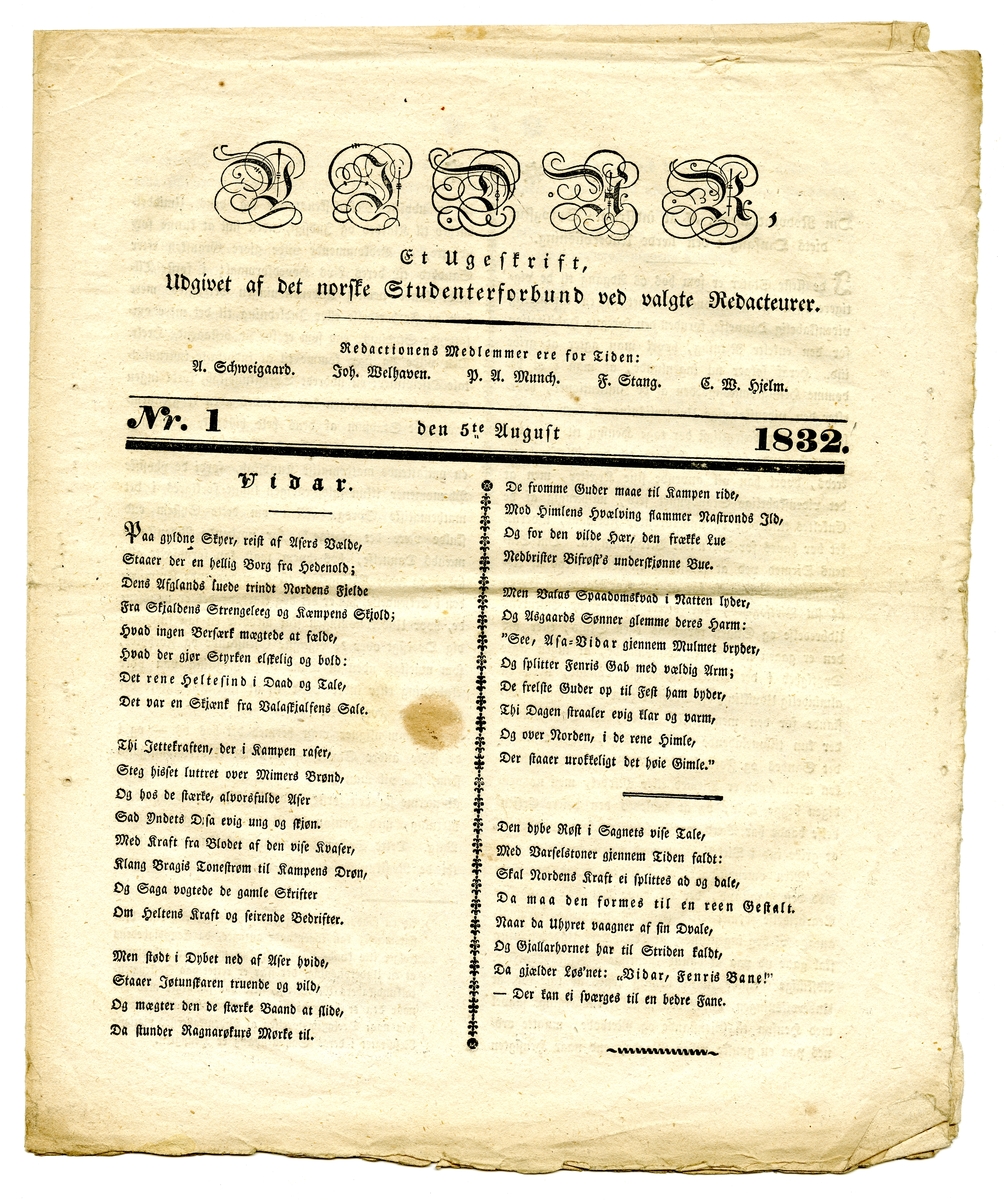 VIDAR,
Et Ugeskrift,
Udgivet af det norske Studenterforbund ved valgte Redacteurer.
Redactionens Medlemmer ere for Tiden:
A. Schweigaard. Joh. Welhaven. P. A. Munch. F. Stang. C. W. Hjelm.
Nr. 1 den 5te August 1832.
Vidar.
Paa gyldne Skyer, reist af Asers Vælde,
Staaer der en hellig Borg fra Hedenold;
Dens Afglands luede trindt Nordens Fjelde
Fra Skjaldens Strengeleeg og Kæmpens Skjold;
Hvad ingen Bersærk mægtede at fælde,
Hvad der gjør Styrken elskelig og bold:
Det rene Heltesind i Daad og Tale,
Det var en Skjænk fra Valaskjalfens Sale.
Thi Jettekraften, der i Kampen raser,
Steg hisset luttret over Mimers Brønd,
Og hos de stærke, alvorsfulde Aser
Sad Yndets Disa evig ung og skjøn.
Med Kraft fra Blodet af den vise Kvaser,
Klang Bragis Tonestrøm til Kampens Drøn,
Og Saga vogtede de gamle Skrifter
Om Heltens Kraft og seirende Bedrifter.
Men stødt i Dybet ned af Aser hvide,
Staaer Jøtunskaren truende og vild,
Og mægter den de stærke Baand at slide,
Da stunder Ragnarøkurs Mørke til.
De fromme Guder maae til Kampen ride,
Mod Himlens Hvælving flammer Nastronds Ild,
Og for den vilde Hær, den frække Lue
Nedbrister Bifrøst's underskjønne Bue.
Men Valas Spaadomskvad i Natten lyder,
Og Asgaards Sønner glemme deres Harm:
"See, Asa-Vidar gjennem Mulmet bryder,
Og splitter Fenris Gab med vældig Arm;
De frelste Guder op til Fest ham byder,
Thi Dagen straaler evig klar og varm,
Og over Norden, i de rene Himle,
Der staaer urokkeligt det høie Gimle."
Den dybe Røst i Sagnets vise Tale,
Med Varselstoner gjennem Tiden faldt:
Skal Nordens Kraft ei splittes ad og dale,
Da maa den formes til en reen Gestalt.
Naar da Uhyret vaagner af sin Dvale,
Og Gjallarhornet har til Striden kaldt,
Da gjælder Løs'net: „Vidar, Fenris Bane!"
— Der kan ei sværges til en bedre Fane.